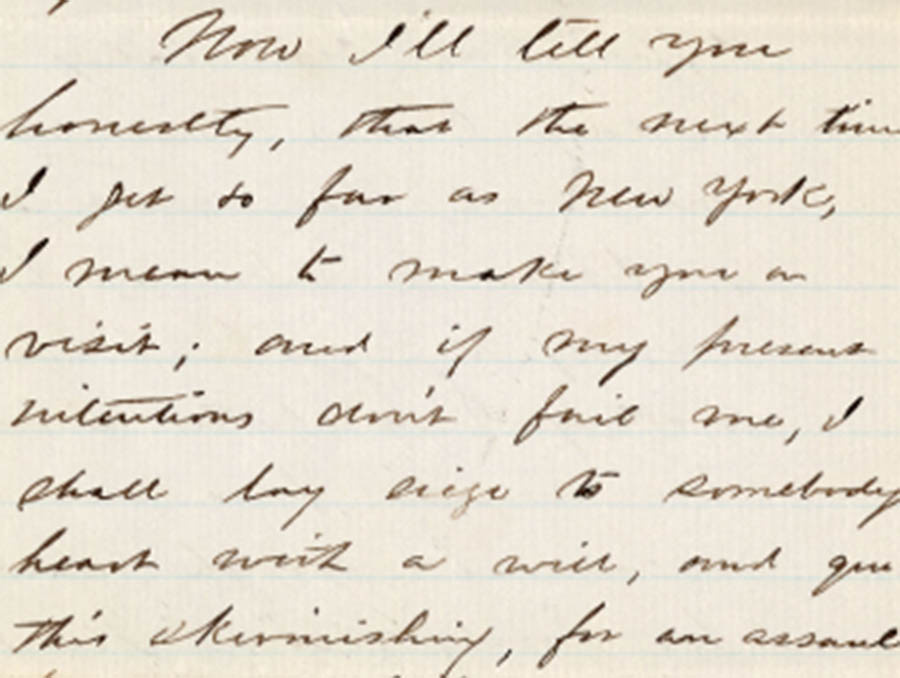 Now I'll tell you
honestly, that the next time
I get so far as New York,
I mean to make you a
visit; and if my present
intentions don't fail me, I
shall lay siege to somebody
heart with a will, and
this skirmishing, for an assault